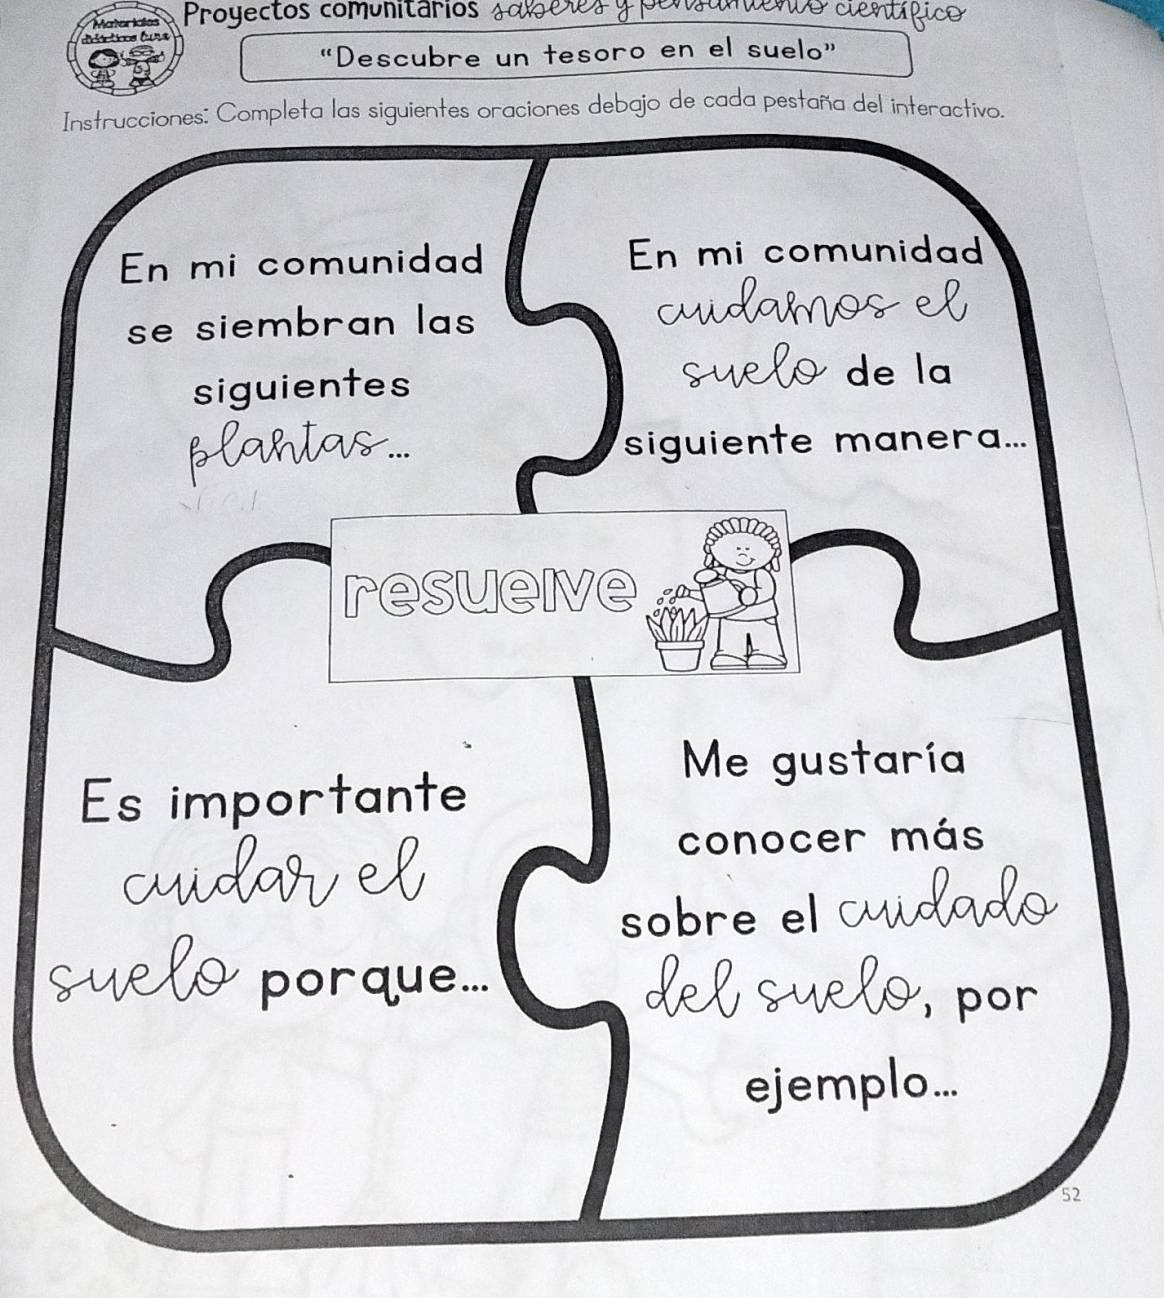 Materiales
didácticos Luna
Proyectos comunitarios saberes y pensamiento científico
"Descubre un tesoro en el suelo"
Instrucciones: Completa las siguientes oraciones debajo de cada pestaña del interactivo.
En mi comunidad
se siembran las
siguientes
plantas...
En mi comunidad
cuidamos el
suelo de la
siguiente manera...
resuelve
Es importante
cuidar el
suelo porque...
Me gustaría
conocer más
sobre el cuidado
del suelo, por
ejemplo...
52